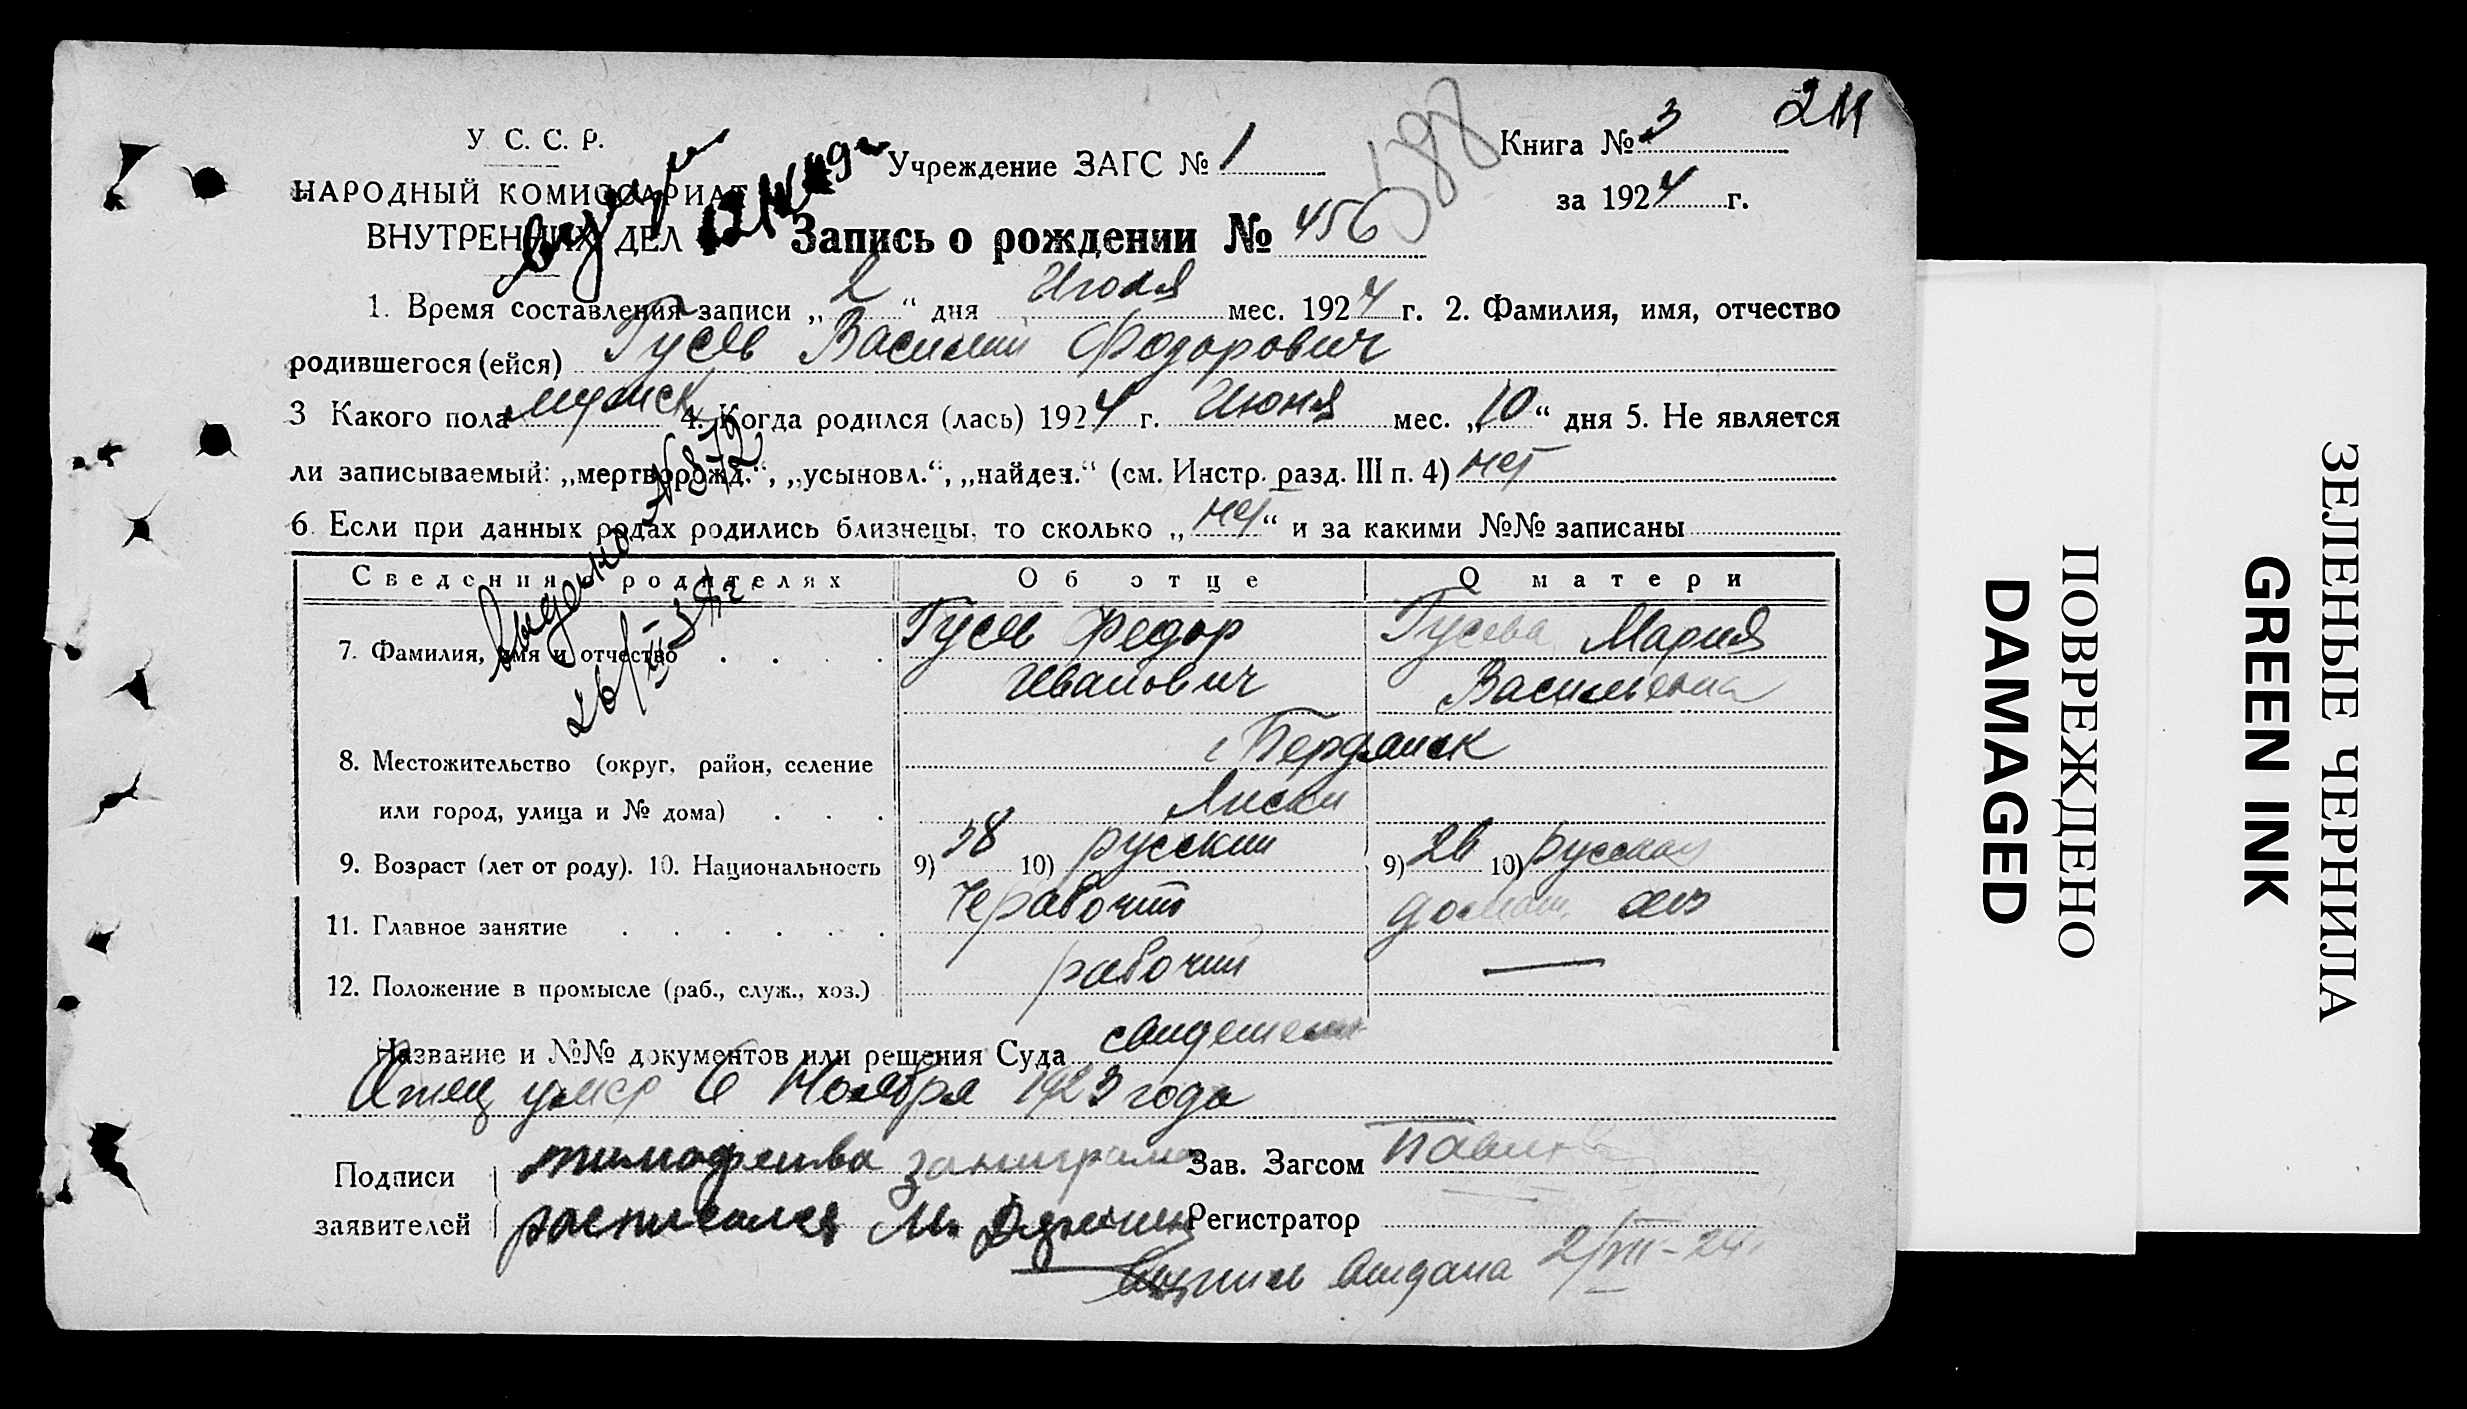 211
У. С. С. Р.
НАРОДНЫЙ КОМИССАРИАТ
ВНУТРЕННИХ ДЕЛ
Учреждение ЗАГС № 1
598
Книга № 3
за 1924 г.
Запись о рождении № 456
1. Время составления записи „ 2 “ дня Июля мес. 1924 г. 2. Фамилия, имя, отчество
родившегося (ейся) Гусев Василий Федорович
3 Какого пола мужск 4. Когда родился (лась) 1924 г. Июня мес. „ 10 “ дня 5. Не является
ли записываемый: „мертворожд.“, „усыновл.“, „найден.“ (см. Инстр. разд. III п. 4) нет
6. Если при данных родах родились близнецы, то сколько „ нет “ и за какими №№ записаны
Сведения о родителях Об отце О матери
7. Фамилия, имя и отчество Гусев Федор Гусева Мария
Иванович Васильевна
8. Местожительство (округ, район, селение г Бердянск
или город, улица и № дома) Лиски
9. Возраст (лет от роду). 10. Национальность 9) 38 10) русский 9) 26 10) русская
11. Главное занятие Чернорабочий домаш. хоз
12. Положение в промысле (раб., служ., хоз.) рабочий —
Название и №№ документов или решения Суда
Отец умер 6 Ноября 1923 года
Подписи
заявителей
Тимофеева
расписался М.
Зав. Загсом
Регистратор
Выпись выдана 2/VII-24
ПОВРЕЖДЕНО
DAMAGED
ЗЕЛЕНЫЕ ЧЕРНИЛА
GREEN INK